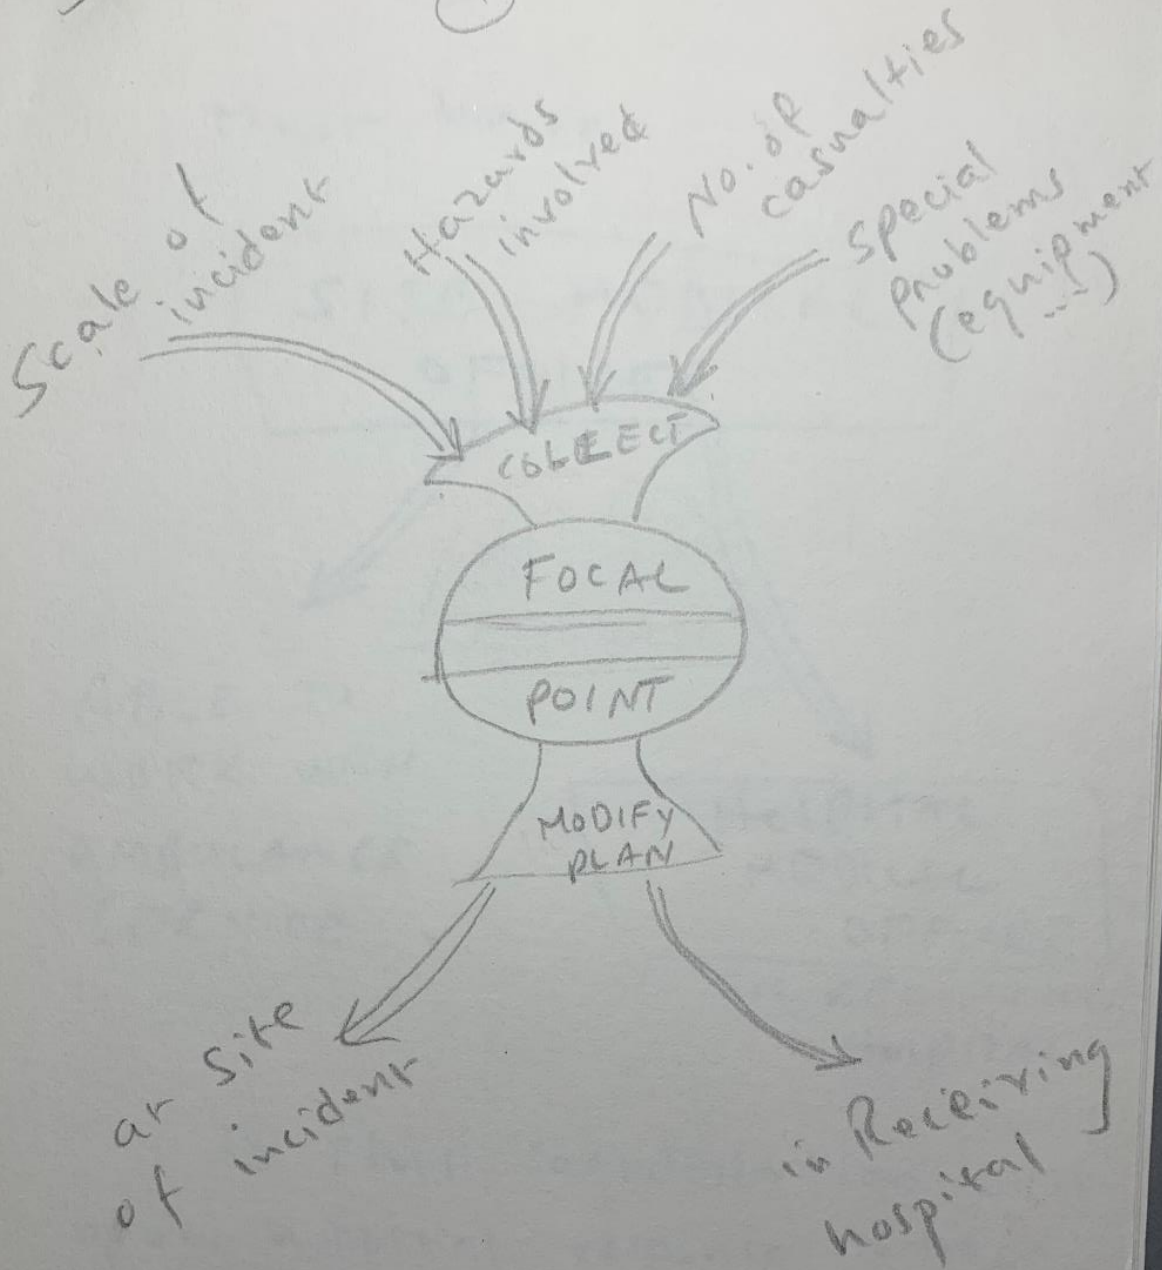 Scale of
incident
Hazards
involved
No. of
casualties
Special
problems
(equipment
...)
COLLECT
FOCAL
POINT
MODIFY
PLAN
at site
of incident
in Receiving
hospital